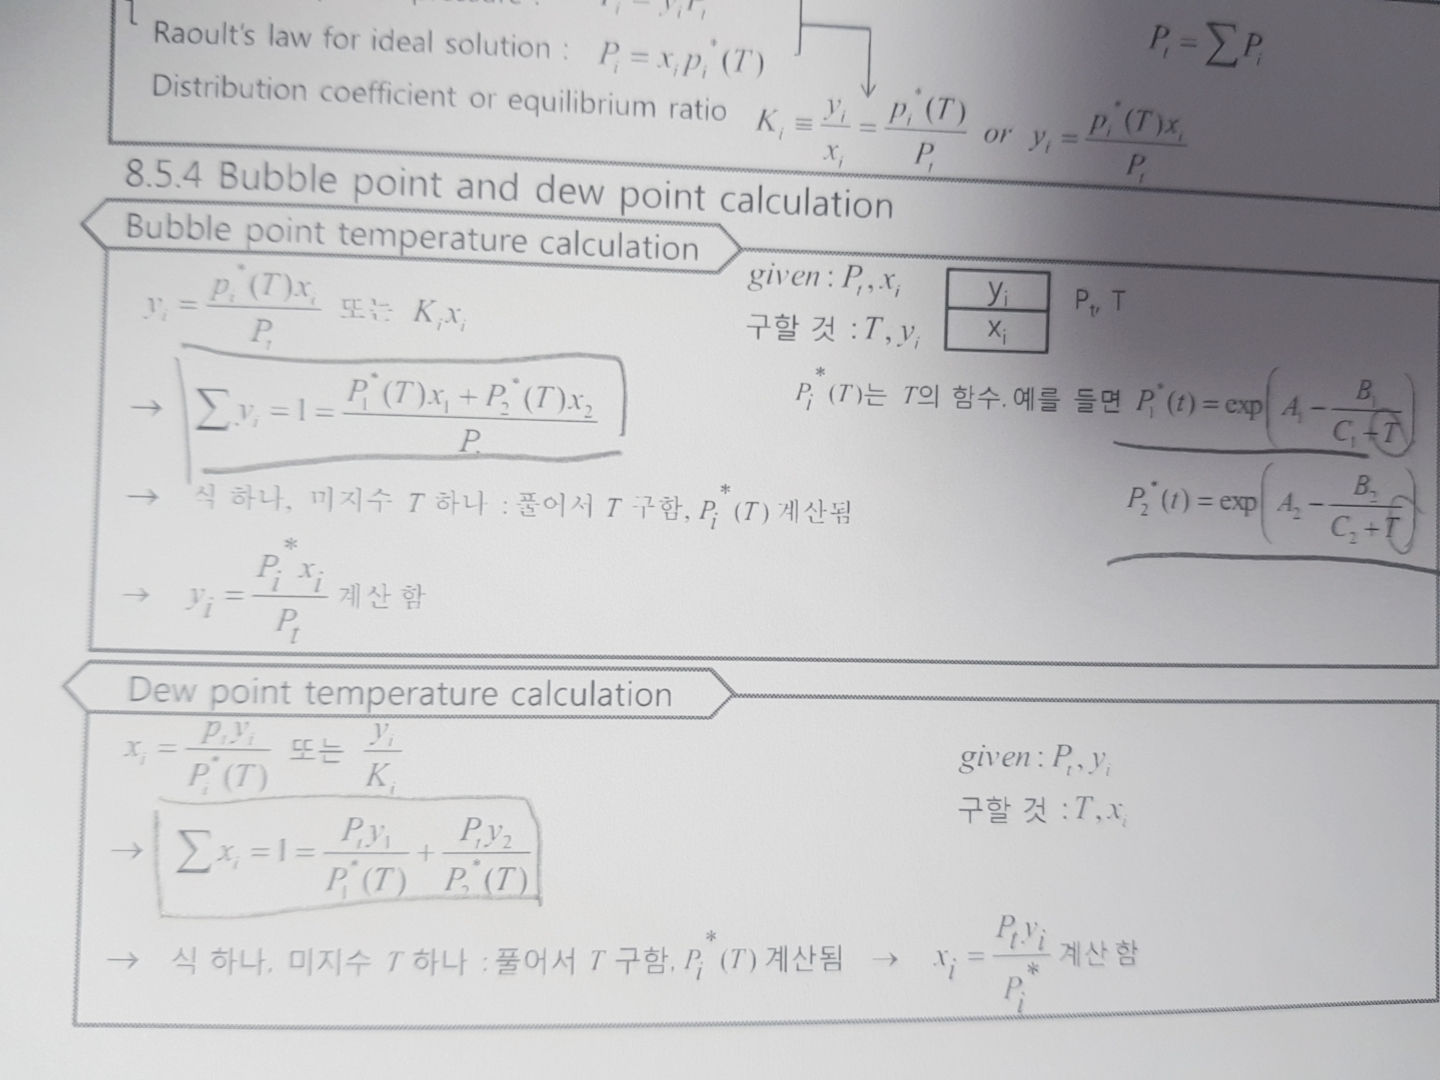 P_i = y_i P_t
Raoult's law for ideal solution : P_i = x_i p_i^*(T)
P_t = ∑ P_i
Distribution coefficient or equilibrium ratio K_i ≡ y_i / x_i = p_i^*(T) / P_t or y_i = p_i^*(T)x_i / P_t
8.5.4 Bubble point and dew point calculation
Bubble point temperature calculation
y_i = p_i^*(T)x_i / P_t 또는 K_i x_i
given : P_t, x_i
구할 것 : T, y_i
y_i
x_i
P_t, T
→ ∑ y_i = 1 = P_1^*(T)x_1 + P_2^*(T)x_2 / P
P_i^*(T)는 T의 함수. 예를 들면 P_1^*(t) = exp(A_1 − B_1 / C_1 + T)
P_2^*(t) = exp(A_2 − B_2 / C_2 + T)
→ 식 하나, 미지수 T 하나 : 풀어서 T 구함, P_i^*(T) 계산됨
→ y_i = P_i^* x_i / P_t 계산 함
Dew point temperature calculation
x_i = p_t y_i / P_i^*(T) 또는 y_i / K_i
given : P_t, y_i
구할 것 : T, x_i
→ ∑ x_i = 1 = P_t y_1 / P_1^*(T) + P_t y_2 / P_2^*(T)
→ 식 하나, 미지수 T 하나 : 풀어서 T 구함, P_i^*(T) 계산됨 → x_i = P_t y_i / P_i^* 계산 함